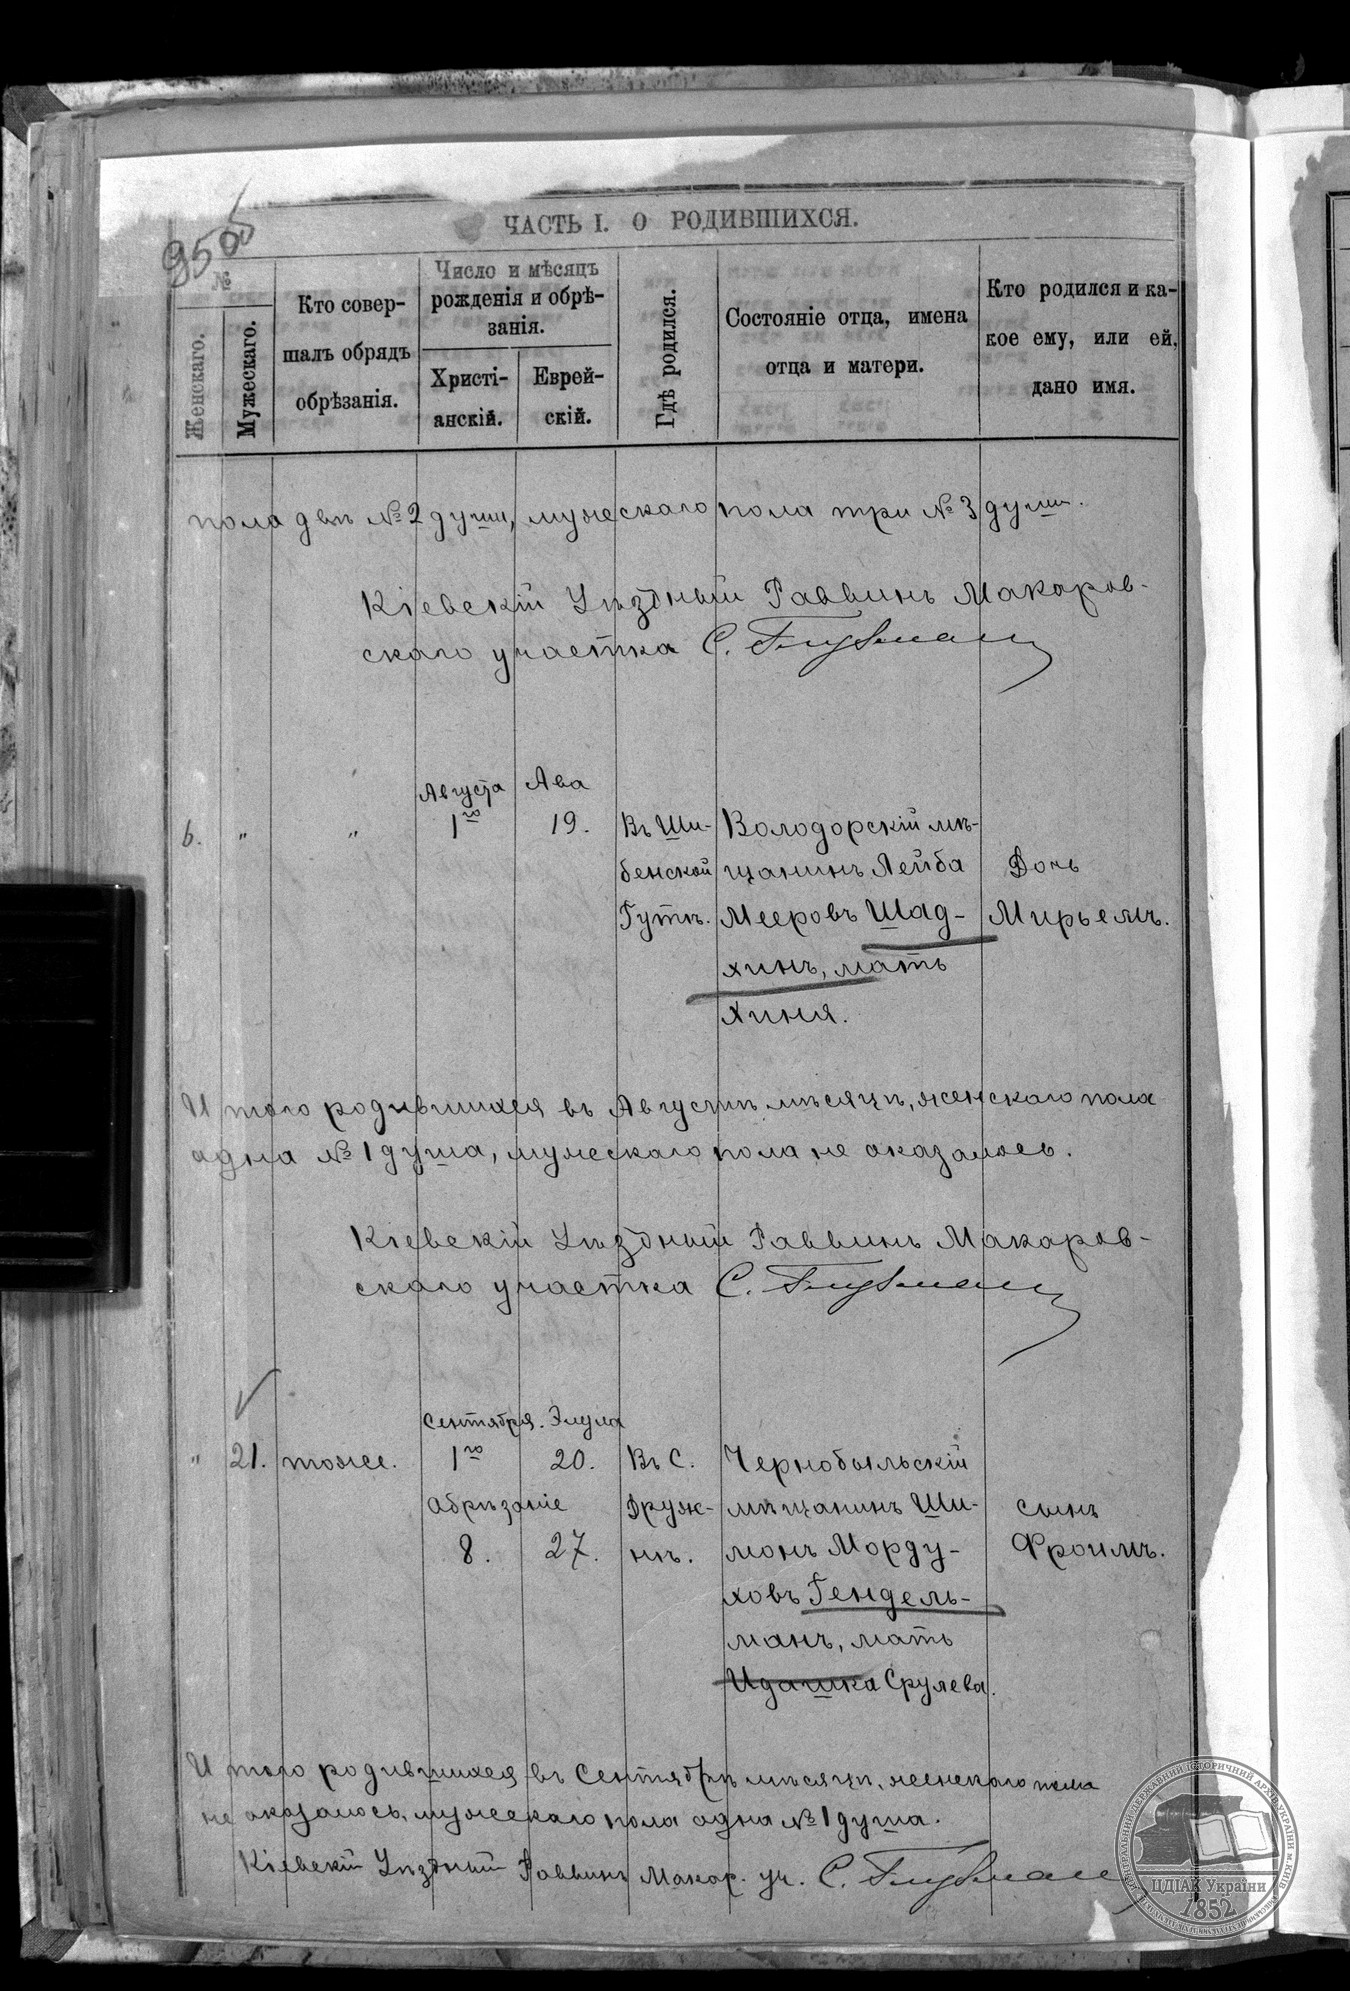 ЧАСТЬ I. О РОДИВШИХСЯ.
№
Женскаго.
Мужескаго.
Кто совер-
шалъ обрядъ
обрѣзанія.
Число и мѣсяцъ
рожденія и обрѣ-
занія.
Христі-
анскій.
Еврей-
скій.
Гдѣ родился.
Состояніе отца, имена
отца и матери.
Кто родился и ка-
кое ему, или ей,
дано имя.
пола двѣ №2 души, мужескаго пола три №3 души.
Кіевскій Уѣздный Раввинъ Макаров-
скаго участка С.
Августа Ава
6. " " 1го 19. Въ Ши- Володорскій мѣ-
бенской щанинъ Лейба Дочь
Гутѣ. Мееровъ Шад- Мирьемъ.
хинъ, мать
Хиня.
И того родившихся въ Августѣ мѣсяцѣ, женскаго пола
одна №1 душа, мужескаго пола не оказалось.
Кіевскій Уѣздный Раввинъ Макаров-
скаго участка С.
Сентября. Элула
" 21. тоже. 1го 20. Въ С. Чернобыльскій
Обрѣзаніе Друж- мѣщанинъ Ши- сынъ
8. 27. нѣ. монъ Морду- Фроимъ.
ховъ Гендель-
манъ, мать
Идашка Срулева.
И того родившихся въ Сентябрѣ мѣсяцѣ, женскаго пола
не оказалось, мужескаго пола одна №1 душа.
Кіевскій Уѣздный Раввинъ Макар. уч. С.
ЦЕНТРАЛЬНИЙ ДЕРЖАВНИЙ ІСТОРИЧНИЙ АРХІВ УКРАЇНИ М.КИЇВ
ЦДІАК України
1852